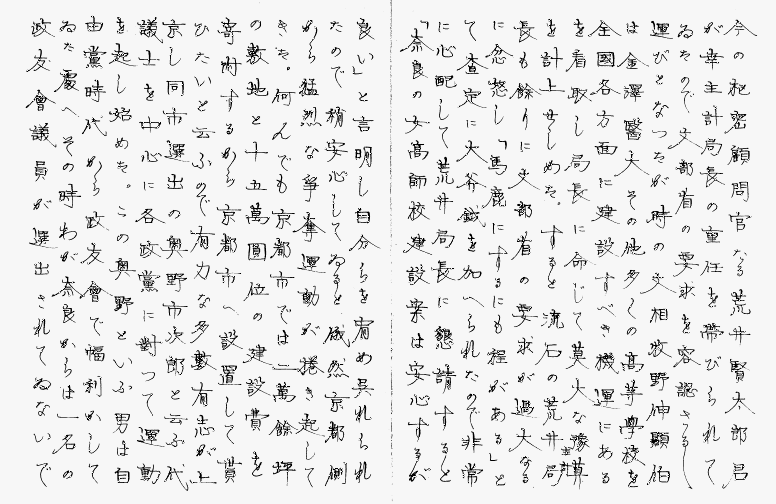 今の枢密顧問官なる荒井賢太郎君
が幸主計局長の重任を帯びられて
ゐたので文部省の要求を容認さるゝ
運びとなつたが時の文相牧野伸顕伯
は金澤醫大その他多くの高等學校を
全國各方面に建設すべき機運にある
を看取し局長に命じて莫大な豫算
を計上せしめた。すると流石の荒井局
長も餘りに文部省の要求が過大なる
に忿怒し「馬鹿にするにも程がある」と
て査定に大斧鉞を加へられたので非常
に心配して荒井局長に懇請すると
「奈良の女高師校建設案は安心するが
良い」と言明し自分らを宥め呉れられ
たので稍安心してゐると俄然京都側
から猛烈な爭奪運動が捲き起して
きた。何んでも京都市では二萬餘坪
の敷地と十五萬圓位の建設費を
寄附するから京都市へ設置して貰
ひたいと云ふので有力な多數有志が上
京し同市選出の奥野市次郎と云ふ代
議士を中心に各政黨に對つて運動
を起し始めた。この奥野といふ男は自
由黨時代から政友會で幅利かして
ゐた處へその時わが奈良からは一名の
政友會議員が選出されてゐないで